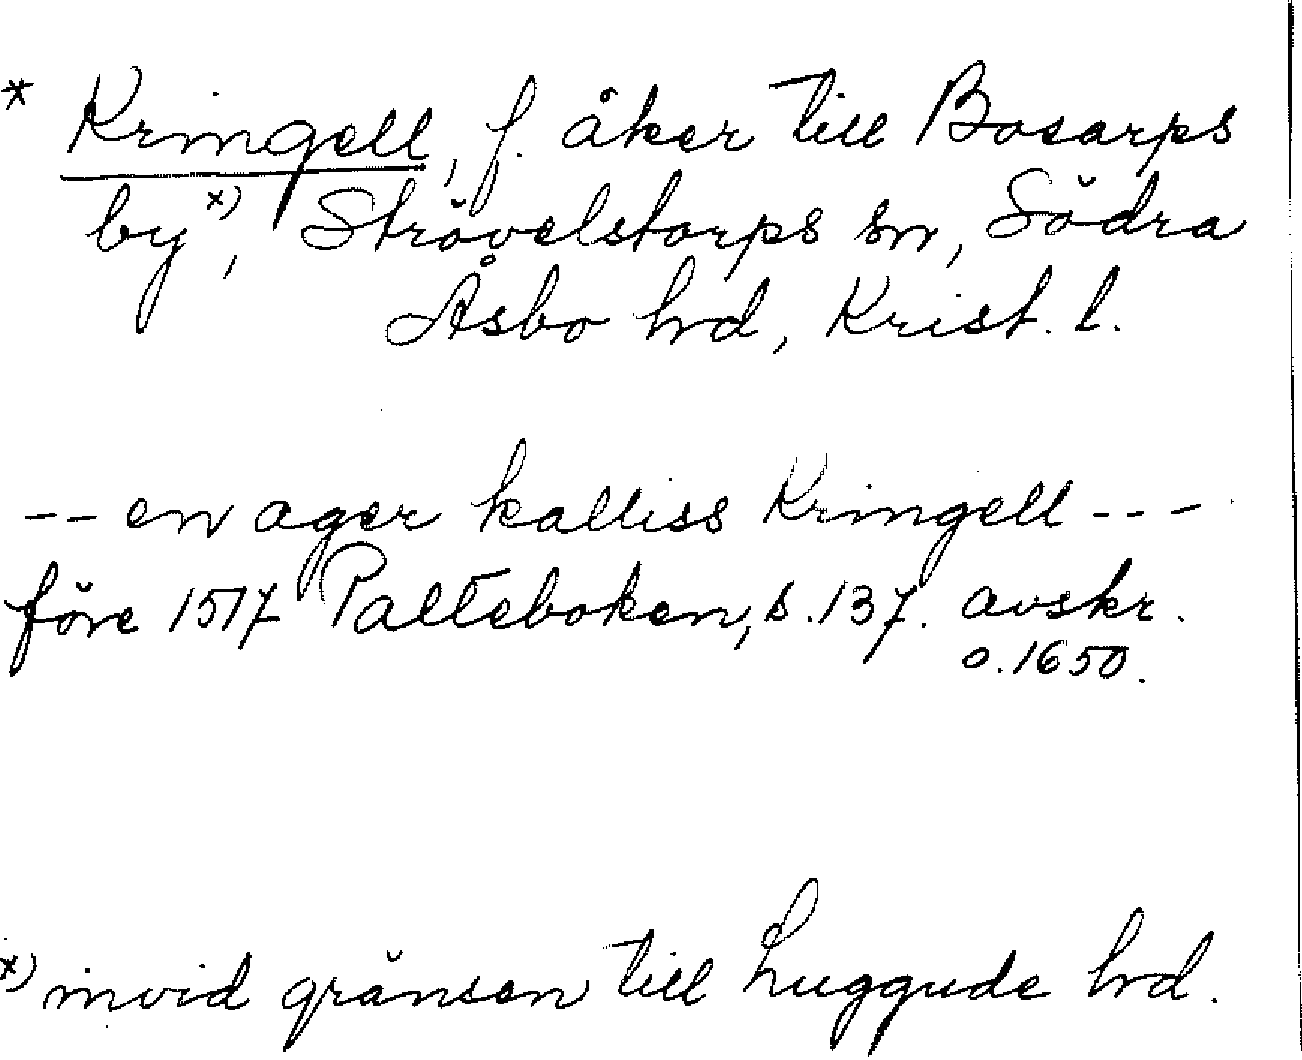 * Kringell, f. åker till Bosarps
by x), Strövelstorps sn, Södra
Åsbo hrd, Krist. l.
-- en ager kalliss Kringell ---
före 1517 Palteboken, s. 137. avskr.
o. 1650.
x) invid gränsen till Luggude hrd.